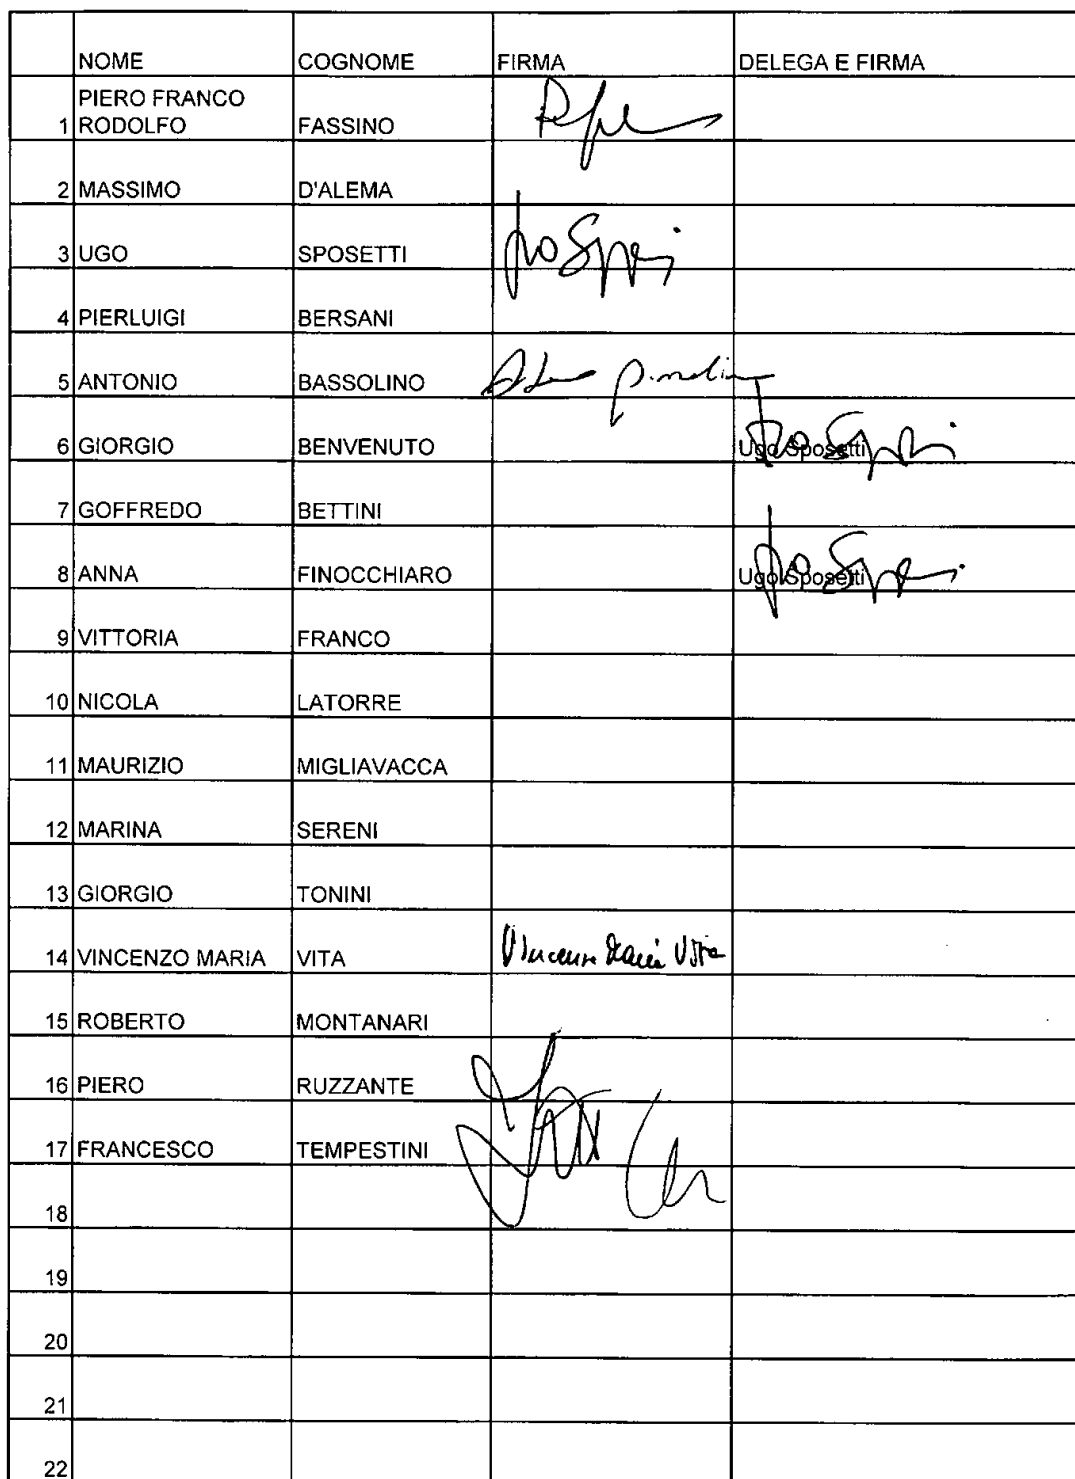 NOME COGNOME FIRMA DELEGA E FIRMA
PIERO FRANCO
1 RODOLFO FASSINO
2 MASSIMO D'ALEMA
3 UGO SPOSETTI
4 PIERLUIGI BERSANI
5 ANTONIO BASSOLINO
6 GIORGIO BENVENUTO Ugo Sposetti
7 GOFFREDO BETTINI
8 ANNA FINOCCHIARO Ugo Sposetti
9 VITTORIA FRANCO
10 NICOLA LATORRE
11 MAURIZIO MIGLIAVACCA
12 MARINA SERENI
13 GIORGIO TONINI
14 VINCENZO MARIA VITA Vincenzo Maria Vita
15 ROBERTO MONTANARI
16 PIERO RUZZANTE
17 FRANCESCO TEMPESTINI
18
19
20
21
22